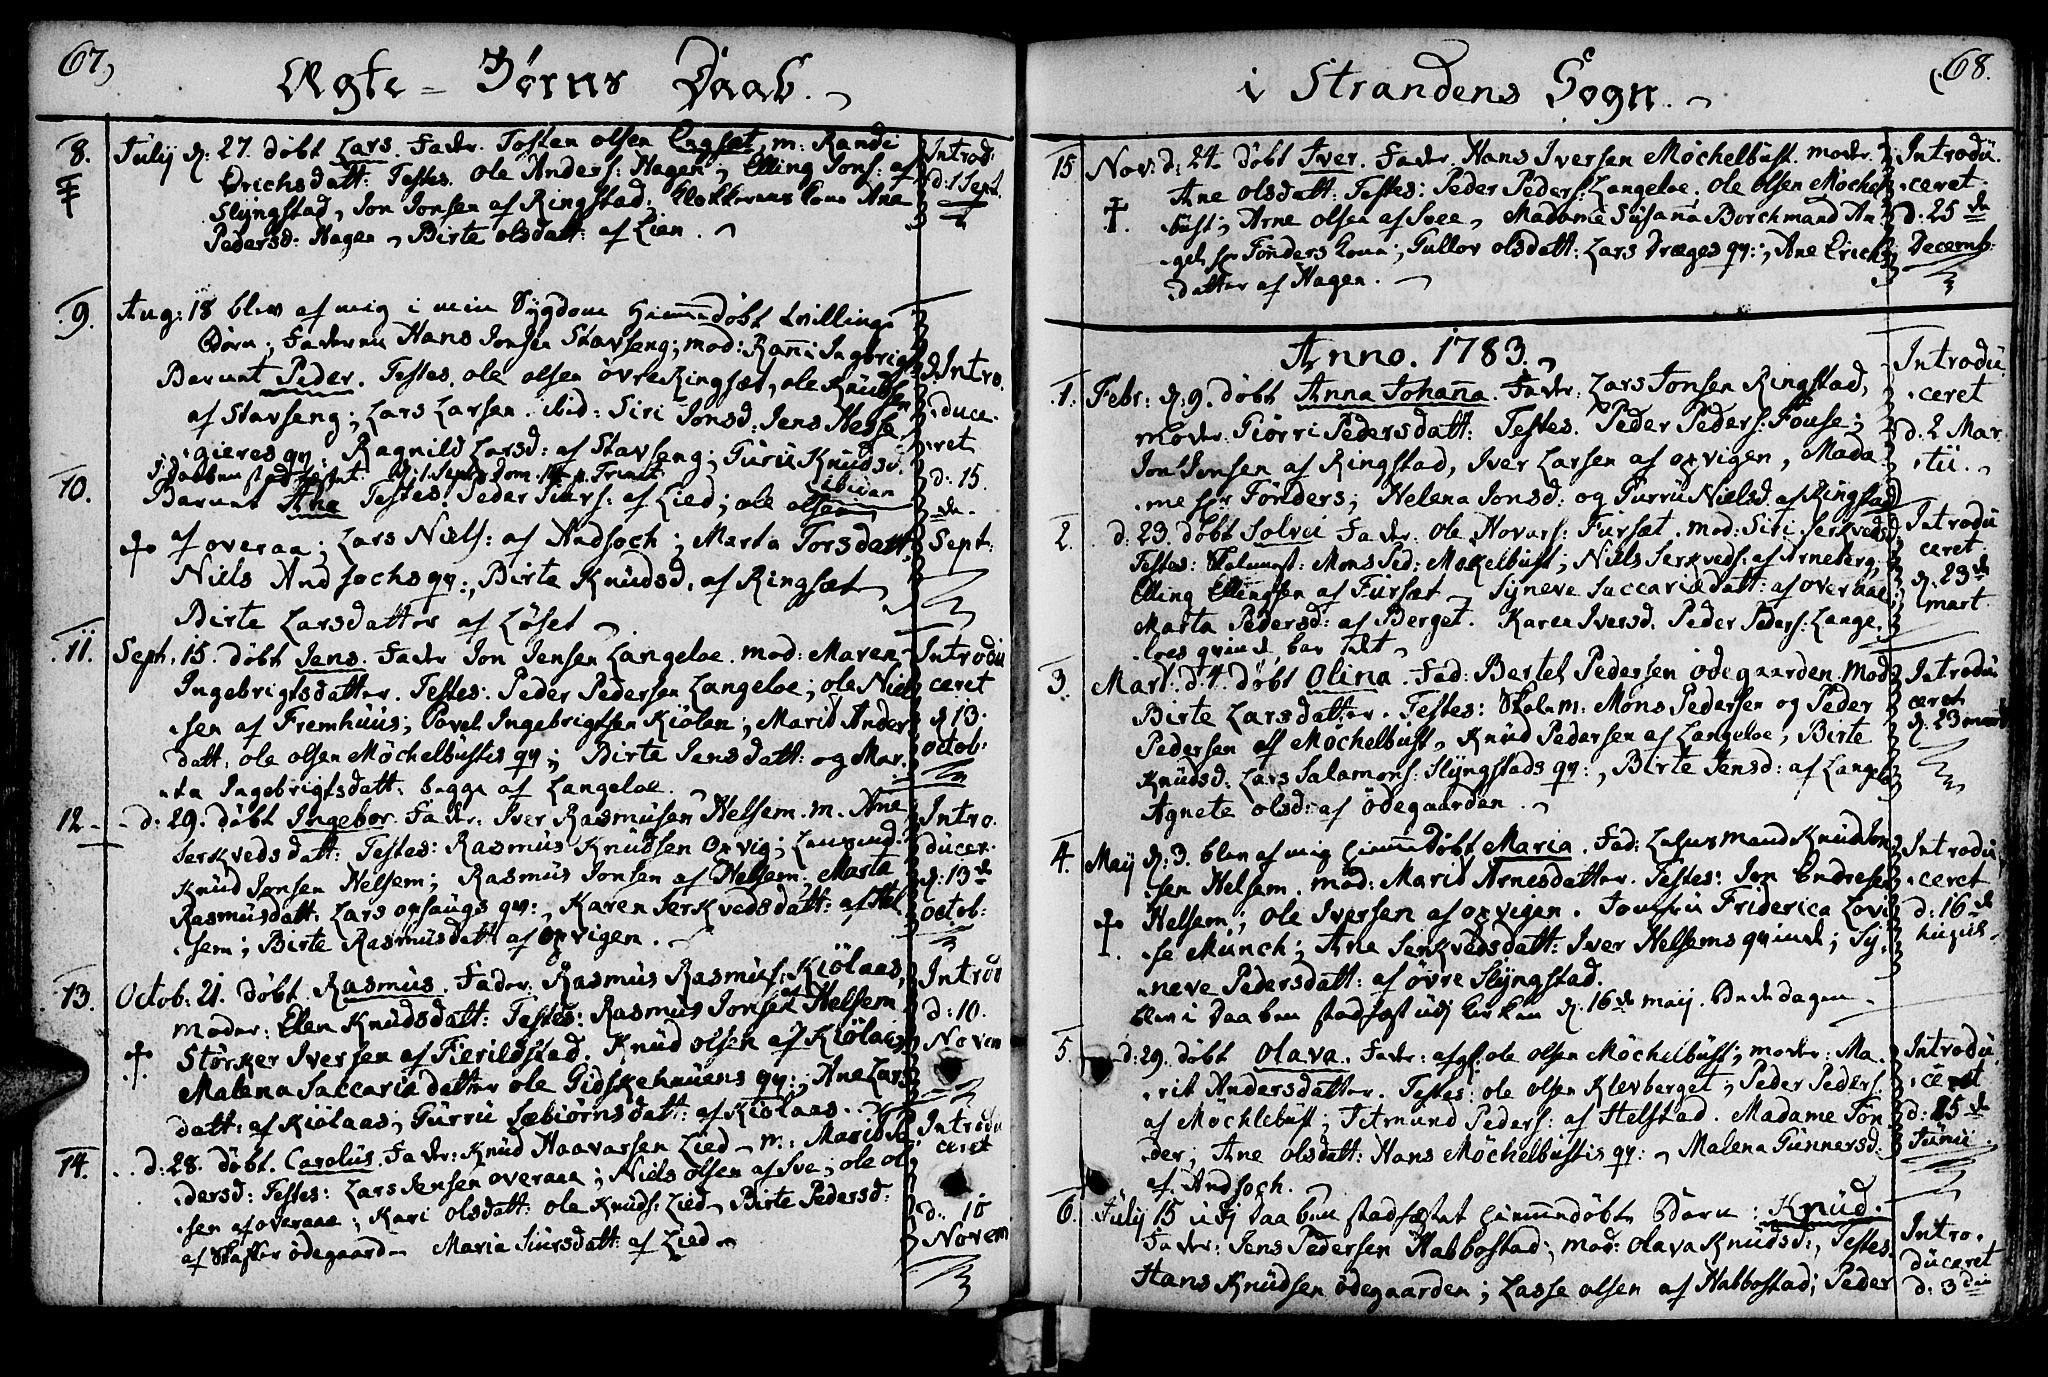 67)
Ægte = Børns Daab.
8. July d: 27. døbt Lars. Fader. Tosten olsen Engset, m: Randi
Erichsdatt: Testes. Ole Anders: Hagen; Elling Jons: af
Slyngstad, Jon Jonsen af Ringstad: Klokkerens kone Ane
Pedersd: Hagen, Birte olsdatt: af Lien.
Introd:
d: 1 Sept.
9. Aug: 18 blev af mig i min Sygdom hiemedøbt tvillinge
Børn; Faderen Hans Jonsen Stavseng; mod: Rani Ingbrigtsd
Barnet Peder. Testes. ole olsen øvre Ringset, ole Knudsen
af Stavseng; Lars Larsen. ibid: Siri Jonsd: Jens Hesse
gieres qv:, Ragnild Larsd: af Stavseng; Guru Knudsd.
ibidem
i Daaben stadfæstet d: 1. Sept: Dom. p. Trinit.
10. Barnet Ane Testes: Peder Siurs: af Lied; ole olsen
af overaa; Lars Niels: af Andsoch; Marta Torsdatt.
Niels Andsochs qv:, Birte Knudsd. af Ringset
Birte Larsdatter af Løset
Intro.
duce-
ret
d: 15.
de.
Sept:
11. Sept. 15. døbt Jens. Fader Jon Jensen Langeloe. mod: Maren
Ingebrigtsdatter. Testes: Peder Pedersen Langeloe; ole Niel
sen af Fremhuus; Povel Ingebrigtsen Kiølen; Marid Anders
datt. ole olsen Møchelbustes qv; Birte Jensdatt: og Mar
ta Ingebrigtsdatt: begge af Langeloe.
Introdu
ceret
d 13.
octob:
12. d: 29. døbt Ingebor. Fader. Iver Rasmusen Helsem. m. Ane
Serkvedsdatt: Testes: Rasmus Knudsen Opvig;
Knud Jonsen Helsem; Rasmus Jonsen af Helsem. Marta
Rasmusdatt: Lars opsaugs qv:, Karen Serkvedsdatt: af Hel
sem; Birte Rasmusdatt af Opvigen.
Intro.
ducer.
d: 13de
octob:
13. Octob: 21. døbt Rasmus. Fader. Rasmus Rasmus: Kiølaas,
moder: Elen Knudsdatt: Testes: Rasmus Jonsen af Helsem
Størker Iversen af Fierildstad. Knud olsen af Kiølaas
Malena Saccariædatter ole Gidskehauens qv:, Ane Lars
datt: af Kiølaas; Gurru Sæbiørnsdatt: af Kiølaas.
Introd
d: 10.
Novem
14. d: 28. døbt. Carolus. Fader: Knud Haavarsen Lied m.: Marit
dersd: Testes: Lars Jensen overaa; Niels olsen af Sve; ole ol
sen af overaae; Kari olsdatt: ole Knuds: Lied, Birte Pedersd:
af Skafter ødegaard Maria Siursdatt: af Lied
Introdu
ceret
d: 10
Novem
68.
i Strandens Sogn.
15 Nov: d: 24. døbt Iver. Fader. Hans Iversen Møchelbust. moder.
Ane olsdatt: Testes: Peder Peders: Langeloe, ole olsen Møchel
bust; Arne olsen af Svee, Madame Susana Borchmand An
gel: Tønders kone; Gullov olsdatt: Lars Dræges qv:, Ane Erichs
datter af Hagen.
Introdu.
ceret.
d: 25de
Decemb:
Anno. 1783.
1. Febr: d: 9. døbt Anna Johana. Fader: Lars Jonsen Ringstad,
moder. Giørri Pedersdatt: Testes. Peder Peders: Fouse;
Jon Jonsen af Ringstad, Iver Larsen af opvigen, Mada
me Tønders; Helena Jonsd: og Gurru Nielsd. af Ringstad
Introdu
ceret
d. 2 Mar
tii.
2. d: 23. døbt Solvu Fader. Ole Hovars: Fursæt. mod: Siri Serkvedsd.
Testes: Skolemest: Mons Ped: Møkelbust; Niels Serkveds: af Arneberg,
Elling Ellingsen af Fursæt, Syneve Saccariædatt: af overaae
Marta Pedersd: af Berget. Karen Iversd. Peder Peders: Lange
loes qvinde bar det.
Introdu
ceret
d. 23de
mart.
3. Mart: d: 4. døbt Olina. Fad: Bertel Pedersen ødegaarden. Mod
Birte Larsdatter. Testes: Skolem: Mons Pedersen og Peder
Pedersen af Møchelbust, Knud Pedersen af Langeloe, Birte
Knudsd: Lars Salamons: Slyngstads qv:, Birte Jensd: af Langelo
Agnete olsd: af ødegaarden.
Introdu
ceret
d. 23 mart
4. Maij d: 3. blev af mig hiemedøbt Maria. Fad: Knud Jon
sen Helsem. mod: Marit Arnesdatter. Testes: Jon Endresen
Helsem; ole Iversen af opvigen. Jomfru Friderica Lovi
se Munch; Ane Serkvedsdatt: Iver Helsems qvinde; Sy
neve Pedersdatt: af øvre Slyngstad.
blev i Daaben stadfæst udj kirken d. 16de maij. Bededagen
Introdu
ceret
d: 16de
5. d: 29. døbt Olava. Fader: ole olsen Møchelbust; moder: Ma
rit Andersdatter. Testes: ole olsen Klevberget; Peder Peders:
af Møchlebust; Tetmund Peders: af Helstad. Madame Tøn
der; Ane olsdatt: Hans Møchelbustis qv:, Malena Gunnersd:
af Andsoch.
Introdu
ceret
d: 15de
Junii.
6. July 15 udj Daaben stadfæstet hiemedøbt Barn: Knud.
Fader: Jens Pedersen Habbostad; mod: olava Knudsd:, Testes.
Hans Knudsen ødegaarden; Lasse olsen af Habbostad; Peder
Intro.
duceret
d: 3die